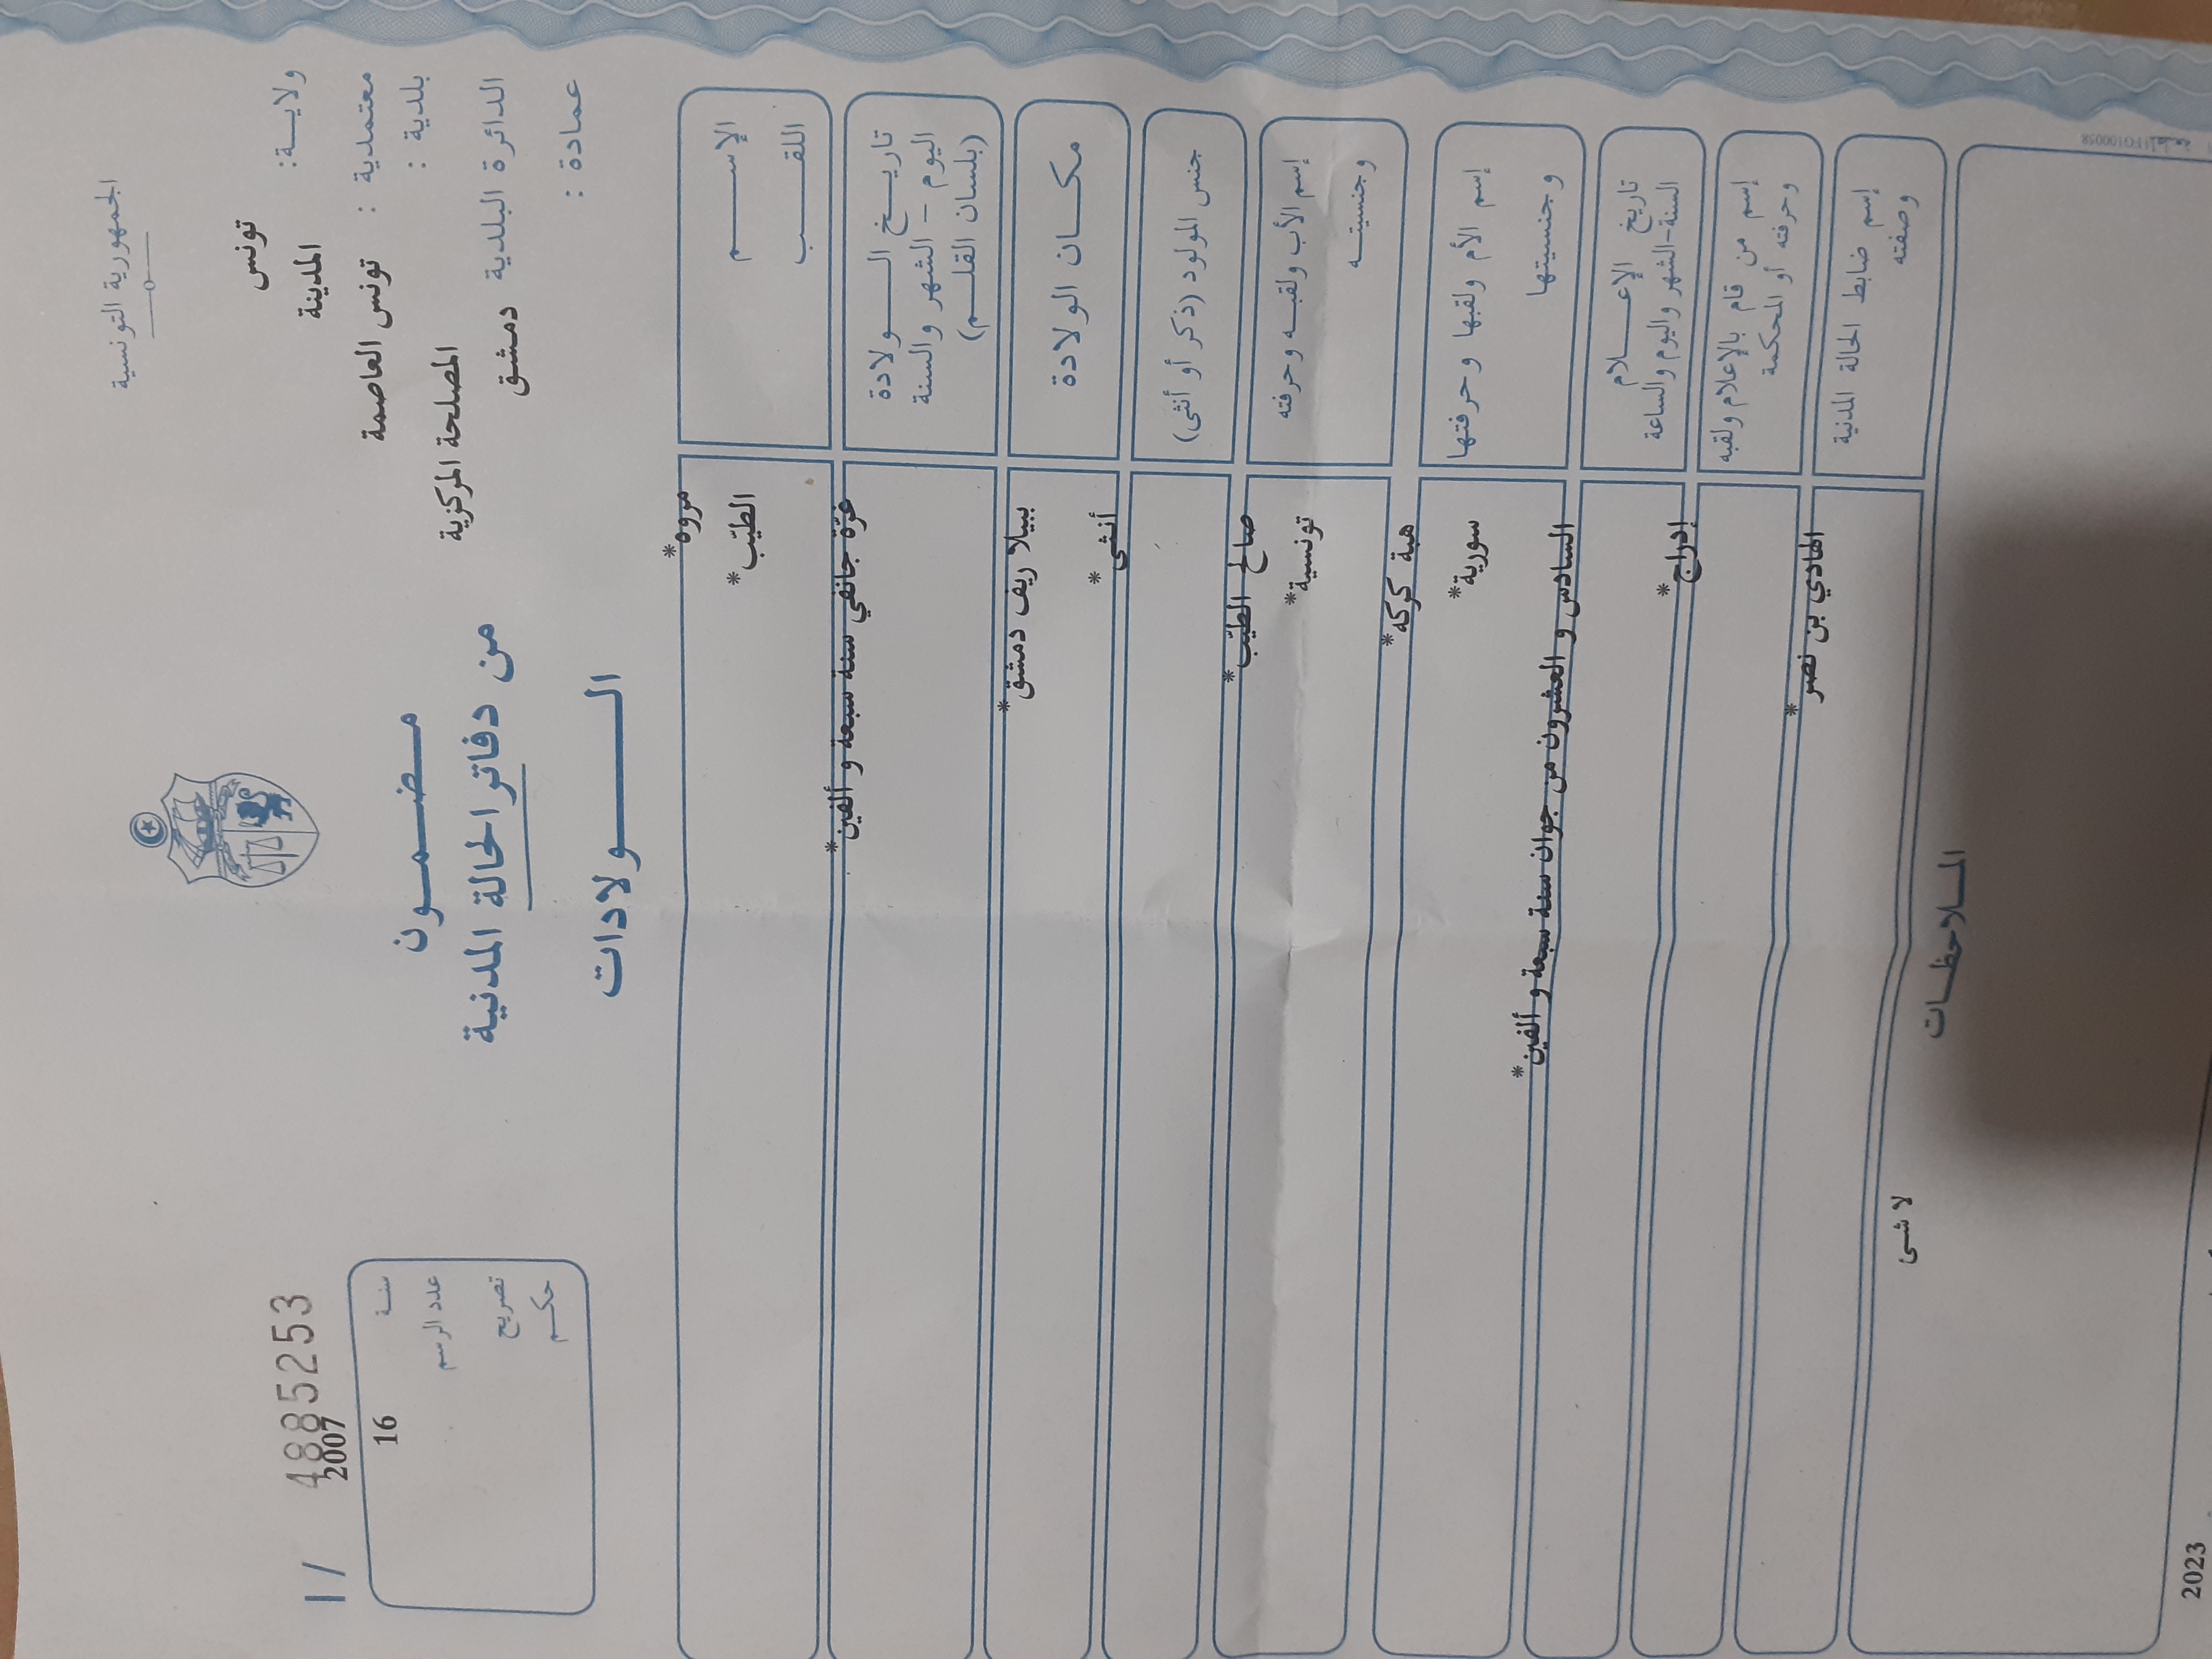 الجمهورية التونسية
ولايـــة: تونس
معتمدية : المدينة
بلدية : تونس العاصمة
الدائرة البلدية المصلحة المركزية
دمشق
عمادة :
مضمـــون
من دفاتر الحالة المدنية
الـــولادات
I / 4885253
2007
سنـة 16
عدد الرسم
تصريح
حكـم
الإســـم مروه*
اللقـــب الطيّب*
تاريـــخ الـــولادة غرّة جانفي سنة سبعة و ألفين*
اليوم – الشهر والسنة
(بلسان القلـم)
مكــان الولادة ببيلا ريف دمشق*
جنس المولود (ذكر أو أنثى) أنثى *
إسم الأب ولقبـه وحرفته صالح الطيّب*
وجنسيتـه تونسية*
هبة كركه*
إسم الأم ولقبها وحرفتها
وجنسيتها سورية*
تاريخ الإعـــلام السادس و العشرون من جوان سنة سبعة و ألفين*
السنة-الشهر واليوم والساعة
إسم من قام بالإعلام ولقبه إدراج*
وحرفته أو المحكمة
إسم ضابط الحالة المدنية الهادي بن نصر*
وصفته
الملاحظــات
لا شئ
2023